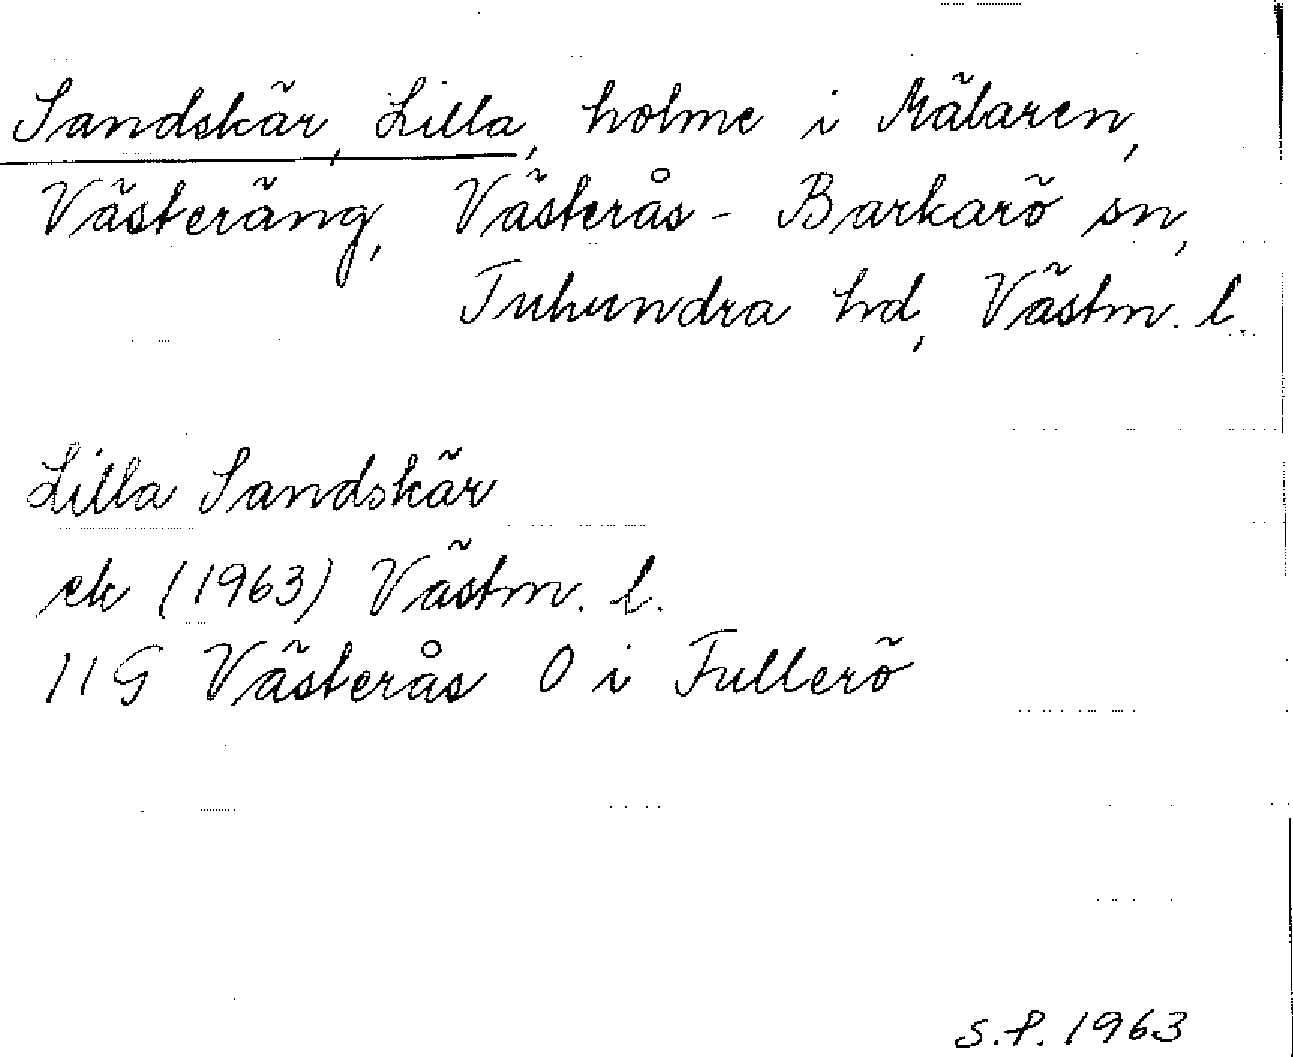 Sandskär, Lilla, holme i Mälaren,
Västeräng, Västerås-Barkarö sn,
Tuhundra hd, Västm. l.
Lilla Sandskär
ek (1963) Västm. l.
11G Västerås 0 i Fullerö
S.P. 1963